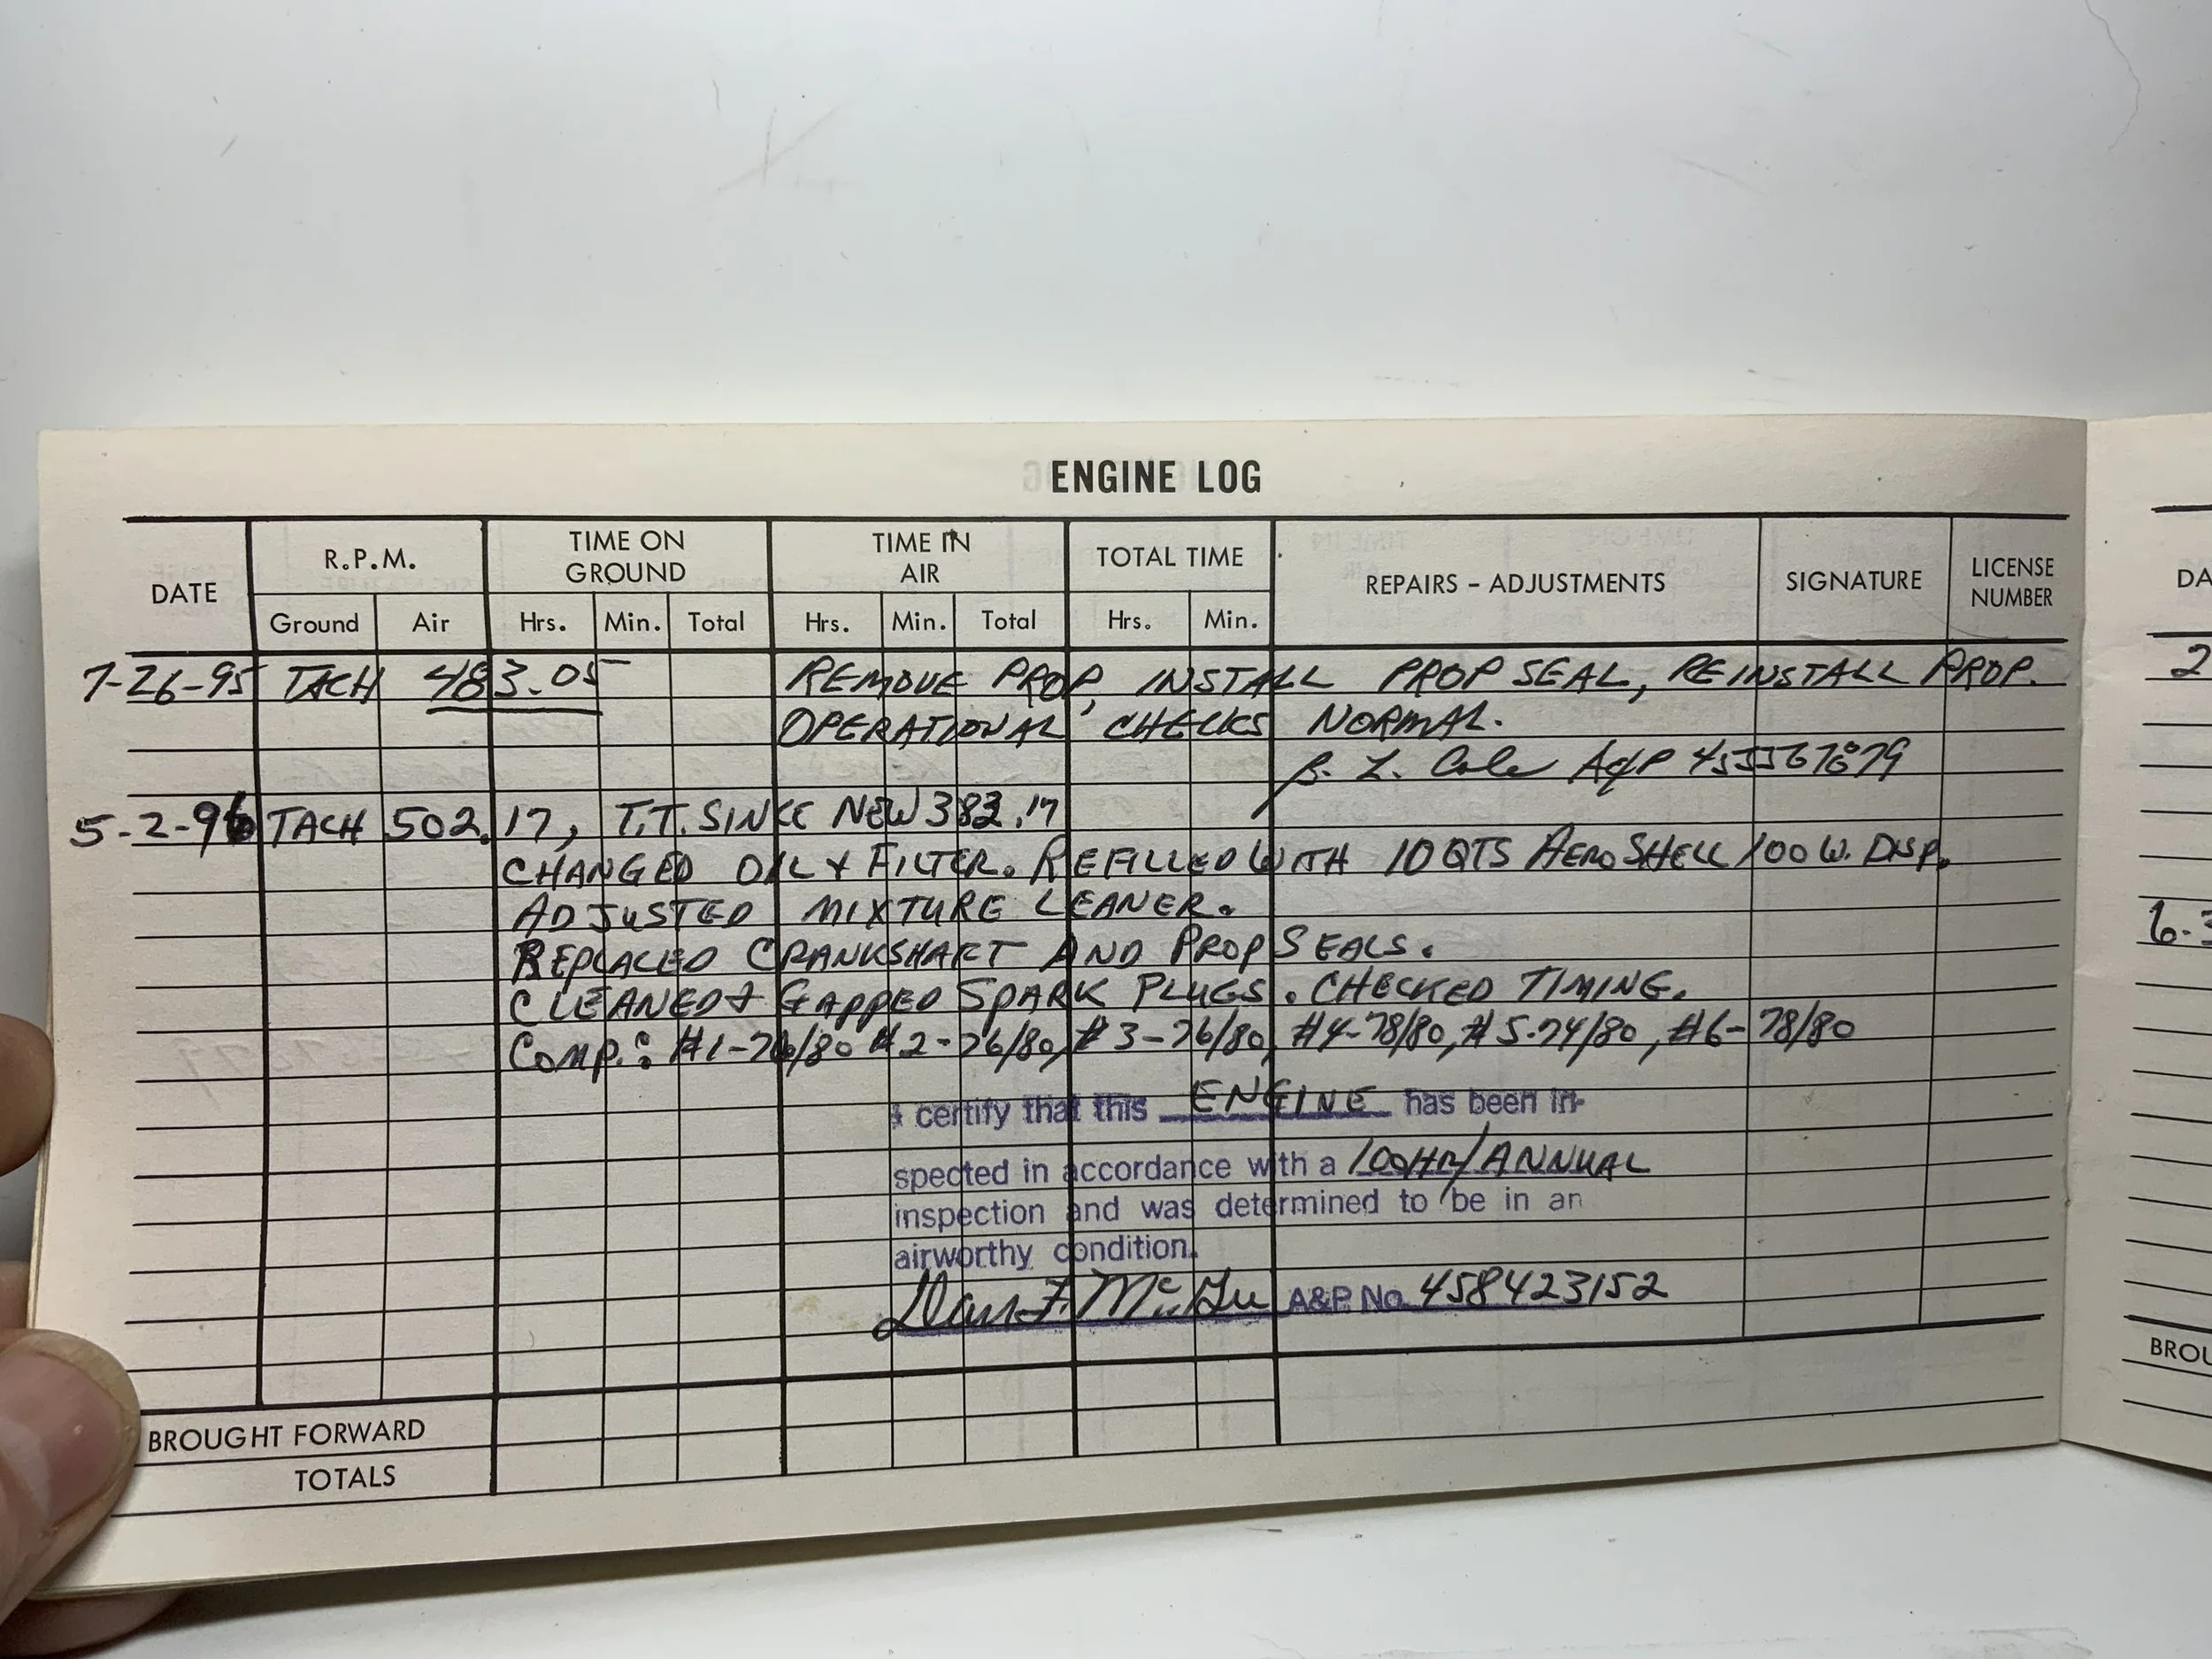 ENGINE LOG
DATE R.P.M. TIME ON GROUND TIME IN AIR TOTAL TIME REPAIRS - ADJUSTMENTS SIGNATURE LICENSE NUMBER
Ground Air Hrs. Min. Total Hrs. Min. Total Hrs. Min.
7-26-95 TACH 483.05 REMOVE PROP, INSTALL PROP SEAL, REINSTALL PROP.
OPERATIONAL CHECKS NORMAL.
B. L. Cole A&P
5-2-96 TACH 502.17, T.T. SINCE NEW 383.17
CHANGED OIL & FILTER. REFILLED WITH 10 QTS AEROSHELL 100 W. DISP.
ADJUSTED MIXTURE LEANER.
REPLACED CRANKSHAFT AND PROP SEALS.
CLEANED & GAPPED SPARK PLUGS. CHECKED TIMING.
COMP.: #1-76/80 #2-76/80, #3-76/80, #4-78/80, #5-74/80, #6-78/80
I certify that this ENGINE has been in-
spected in accordance with a 100HR/ANNUAL
inspection and was determined to be in an
airworthy condition.
A&P. No. 458423152
BROUGHT FORWARD
TOTALS
DA
2
6-3
BROU